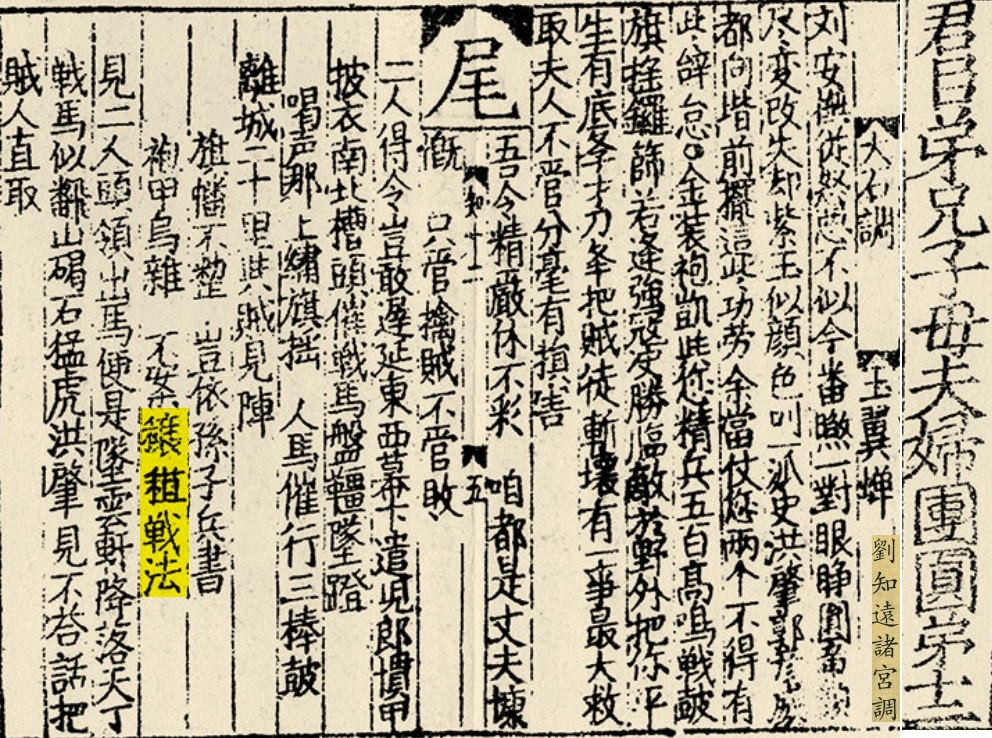 君臣弟兄子母夫婦團圓弟十二
大石調 玉翼蟬
劉知遠諸宮調
刘安撫従怒不似今番一對眼睜圓
尽变改失却紫玉似顏色叫一派史洪肇郭
都向堦前擺這些功劳余當仗您两个不得有
此辞怠○金装袍凱些您精兵五百高鳴戰皷
旗搖鑼篩若逢强勝臨敵於野外把你平
生有底刀把賊徒斬壞有一事最大救
取夫人不管分毫有損害
尾 吾令精嚴休不彩 咱都是丈夫懷
慨 只管擒賊不管敗
知十二 五
二人得令豈敢遲延東西幕下遣児郎慣甲
披衣南北槽頭催戰馬盤韁墜蹬
喝声那上綉旗拙 人馬催行三棒皷
離城二十里與賊見陣
旌幡不整 豈依孫子兵書
袍甲烏雜 不案戰法
見二人頭領出馬便是墜雲軒降落天丁
戦馬似翻山碣石猛虎洪肇見不荅話把
賊人直取